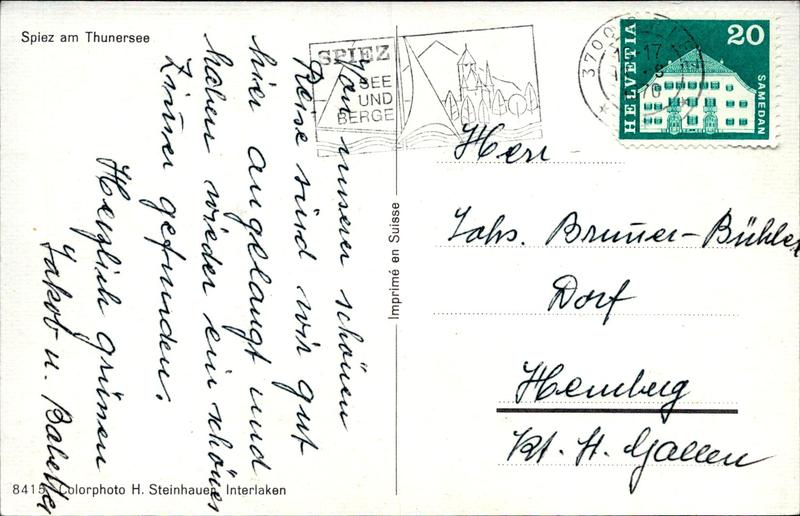 Spiez am Thunersee
Von unserer schönen
Reise sind wir gut
hier angelangt und
haben wieder ein schönes
Zimmer gefunden.
Herzlich grüssen
Jakob u. Babette
8415 Colorphoto H. Steinhauer, Interlaken
Imprimé en Suisse
SPIEZ
SEE
UND
BERGE
3700
17
70
HELVETIA
20
SAMEDAN
Herr
Johs. Brunner-Bühler
Dorf
Hemberg
Kt. St. Gallen